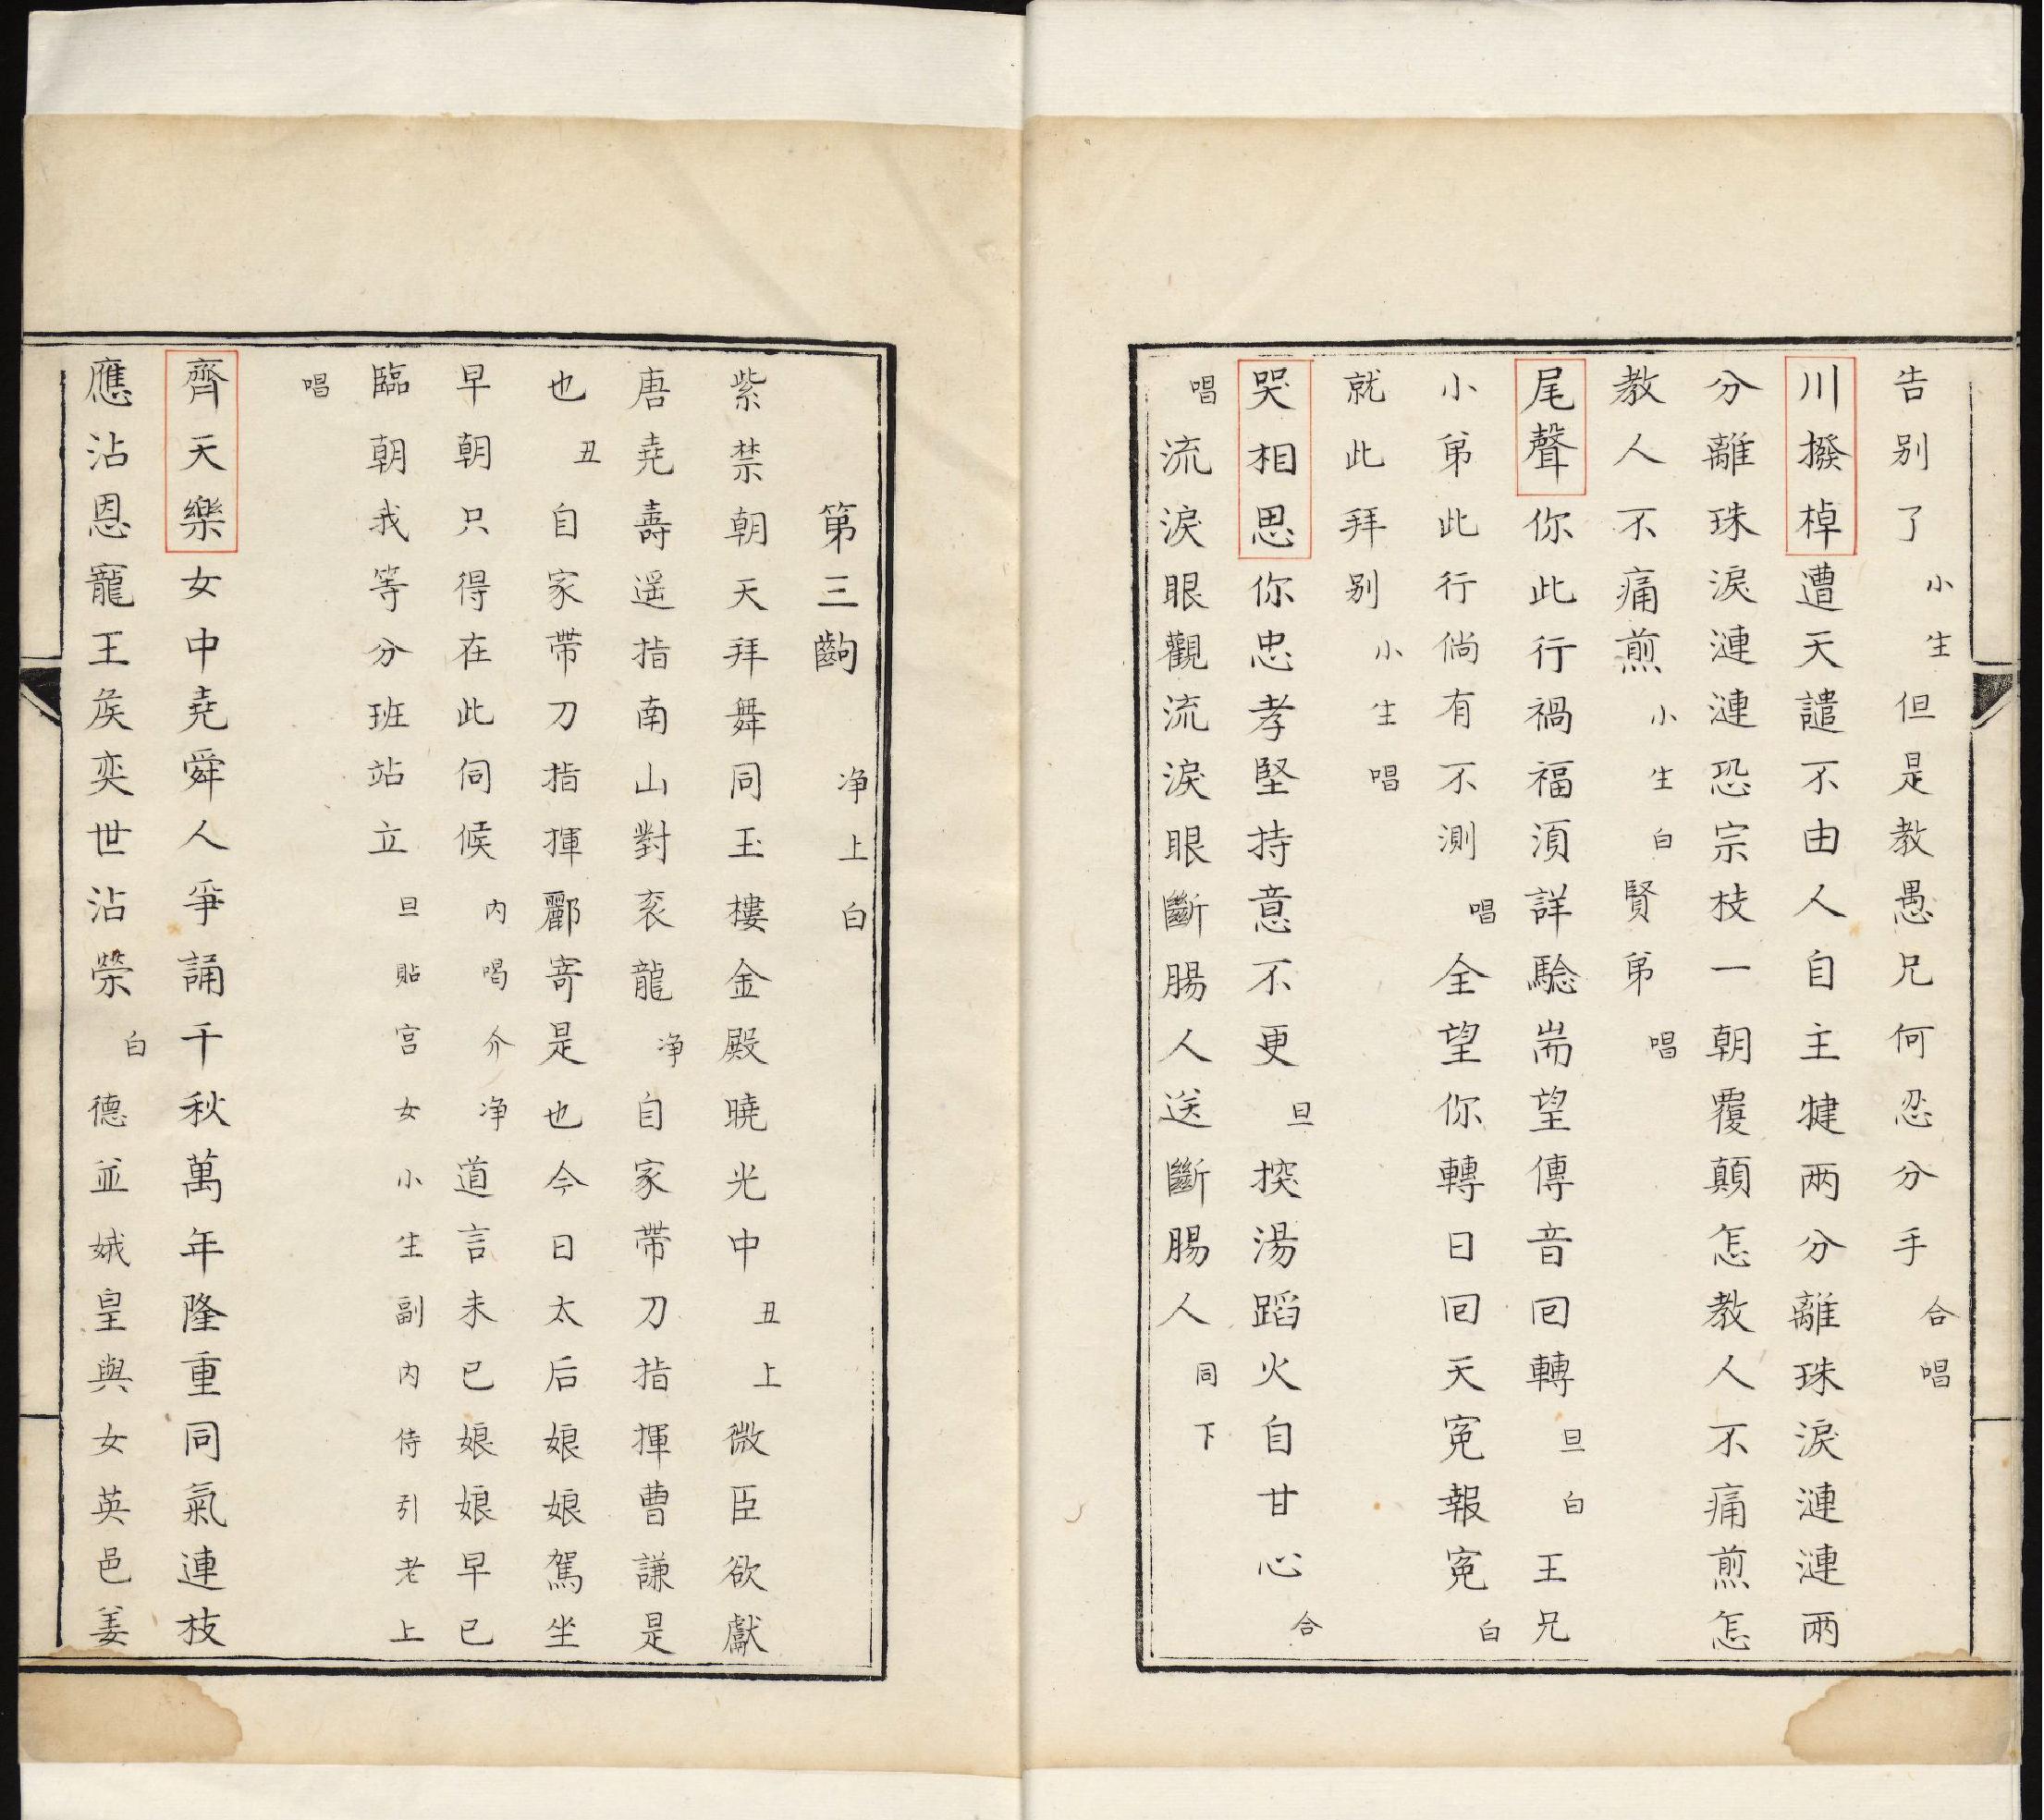 告别了小生但是教愚兄何忍分手合唱
川撥棹遭天譴不由人自主揵两分離珠淚漣漣兩
分離珠淚漣漣恐宗枝一朝覆顛怎教人不痛煎怎
教人不痛煎小生白賢弟唱
尾聲你此行禍福湏詳騐耑望傳音囘轉旦白王兄
小弟此行倘有不測唱全望你轉日囘天寃報寃白
就此拜别小生唱
哭相思你忠孝堅持意不更旦揬湯蹈火自甘心合
唱流淚眼觀流淚眼斷腸人送斷腸人同下
第三齣净上白
紫禁朝天拜舞同玉樓金殿曉光中丑上微臣欲獻
唐堯壽遥指南山對衮龍净自家帶刀指揮曹謙是
也丑自家帶刀指揮酈寄是也今日太后娘娘駕坐
早朝只得在此伺候内喝介净道言未已娘娘早已
臨朝我等分班站立旦貼宫女小生副内侍引老上
唱
齊天樂女中堯舜人爭誦千秋萬年隆重同氣連枝
應沾恩寵王矦奕世沾榮白德並娥皇與女英邑姜